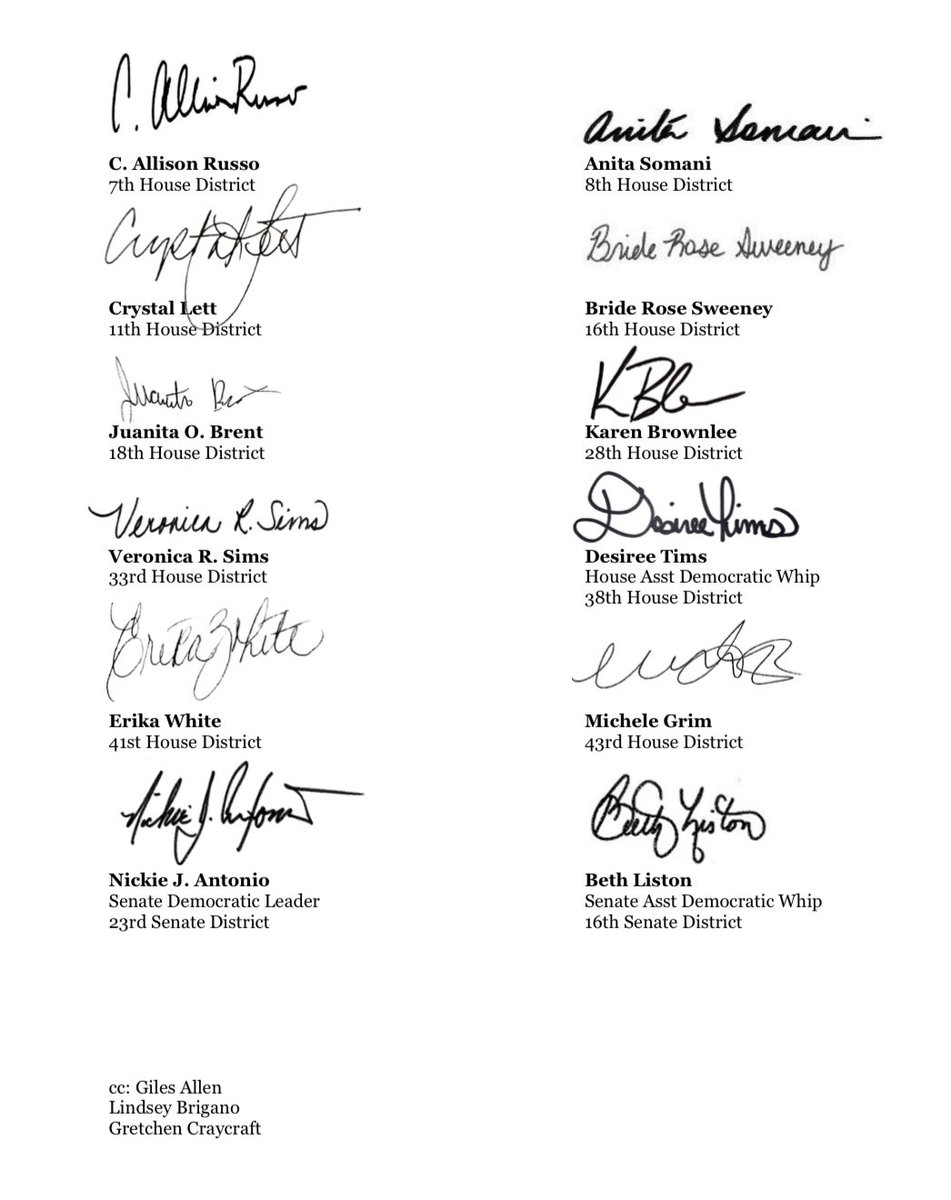 C. Allison Russo
C. Allison Russo
7th House District
Anita Somani
Anita Somani
8th House District
Crystal Lett
Crystal Lett
11th House District
Bride Rose Sweeney
Bride Rose Sweeney
16th House District
Juanita
Juanita O. Brent
18th House District
Karen Brownlee
28th House District
Veronica R. Sims
Veronica R. Sims
33rd House District
Desiree Tims
Desiree Tims
House Asst Democratic Whip
38th House District
Erika White
Erika White
41st House District
Michele Grim
43rd House District
Nickie J. Antonio
Nickie J. Antonio
Senate Democratic Leader
23rd Senate District
Beth Liston
Beth Liston
Senate Asst Democratic Whip
16th Senate District
cc: Giles Allen
Lindsey Brigano
Gretchen Craycraft